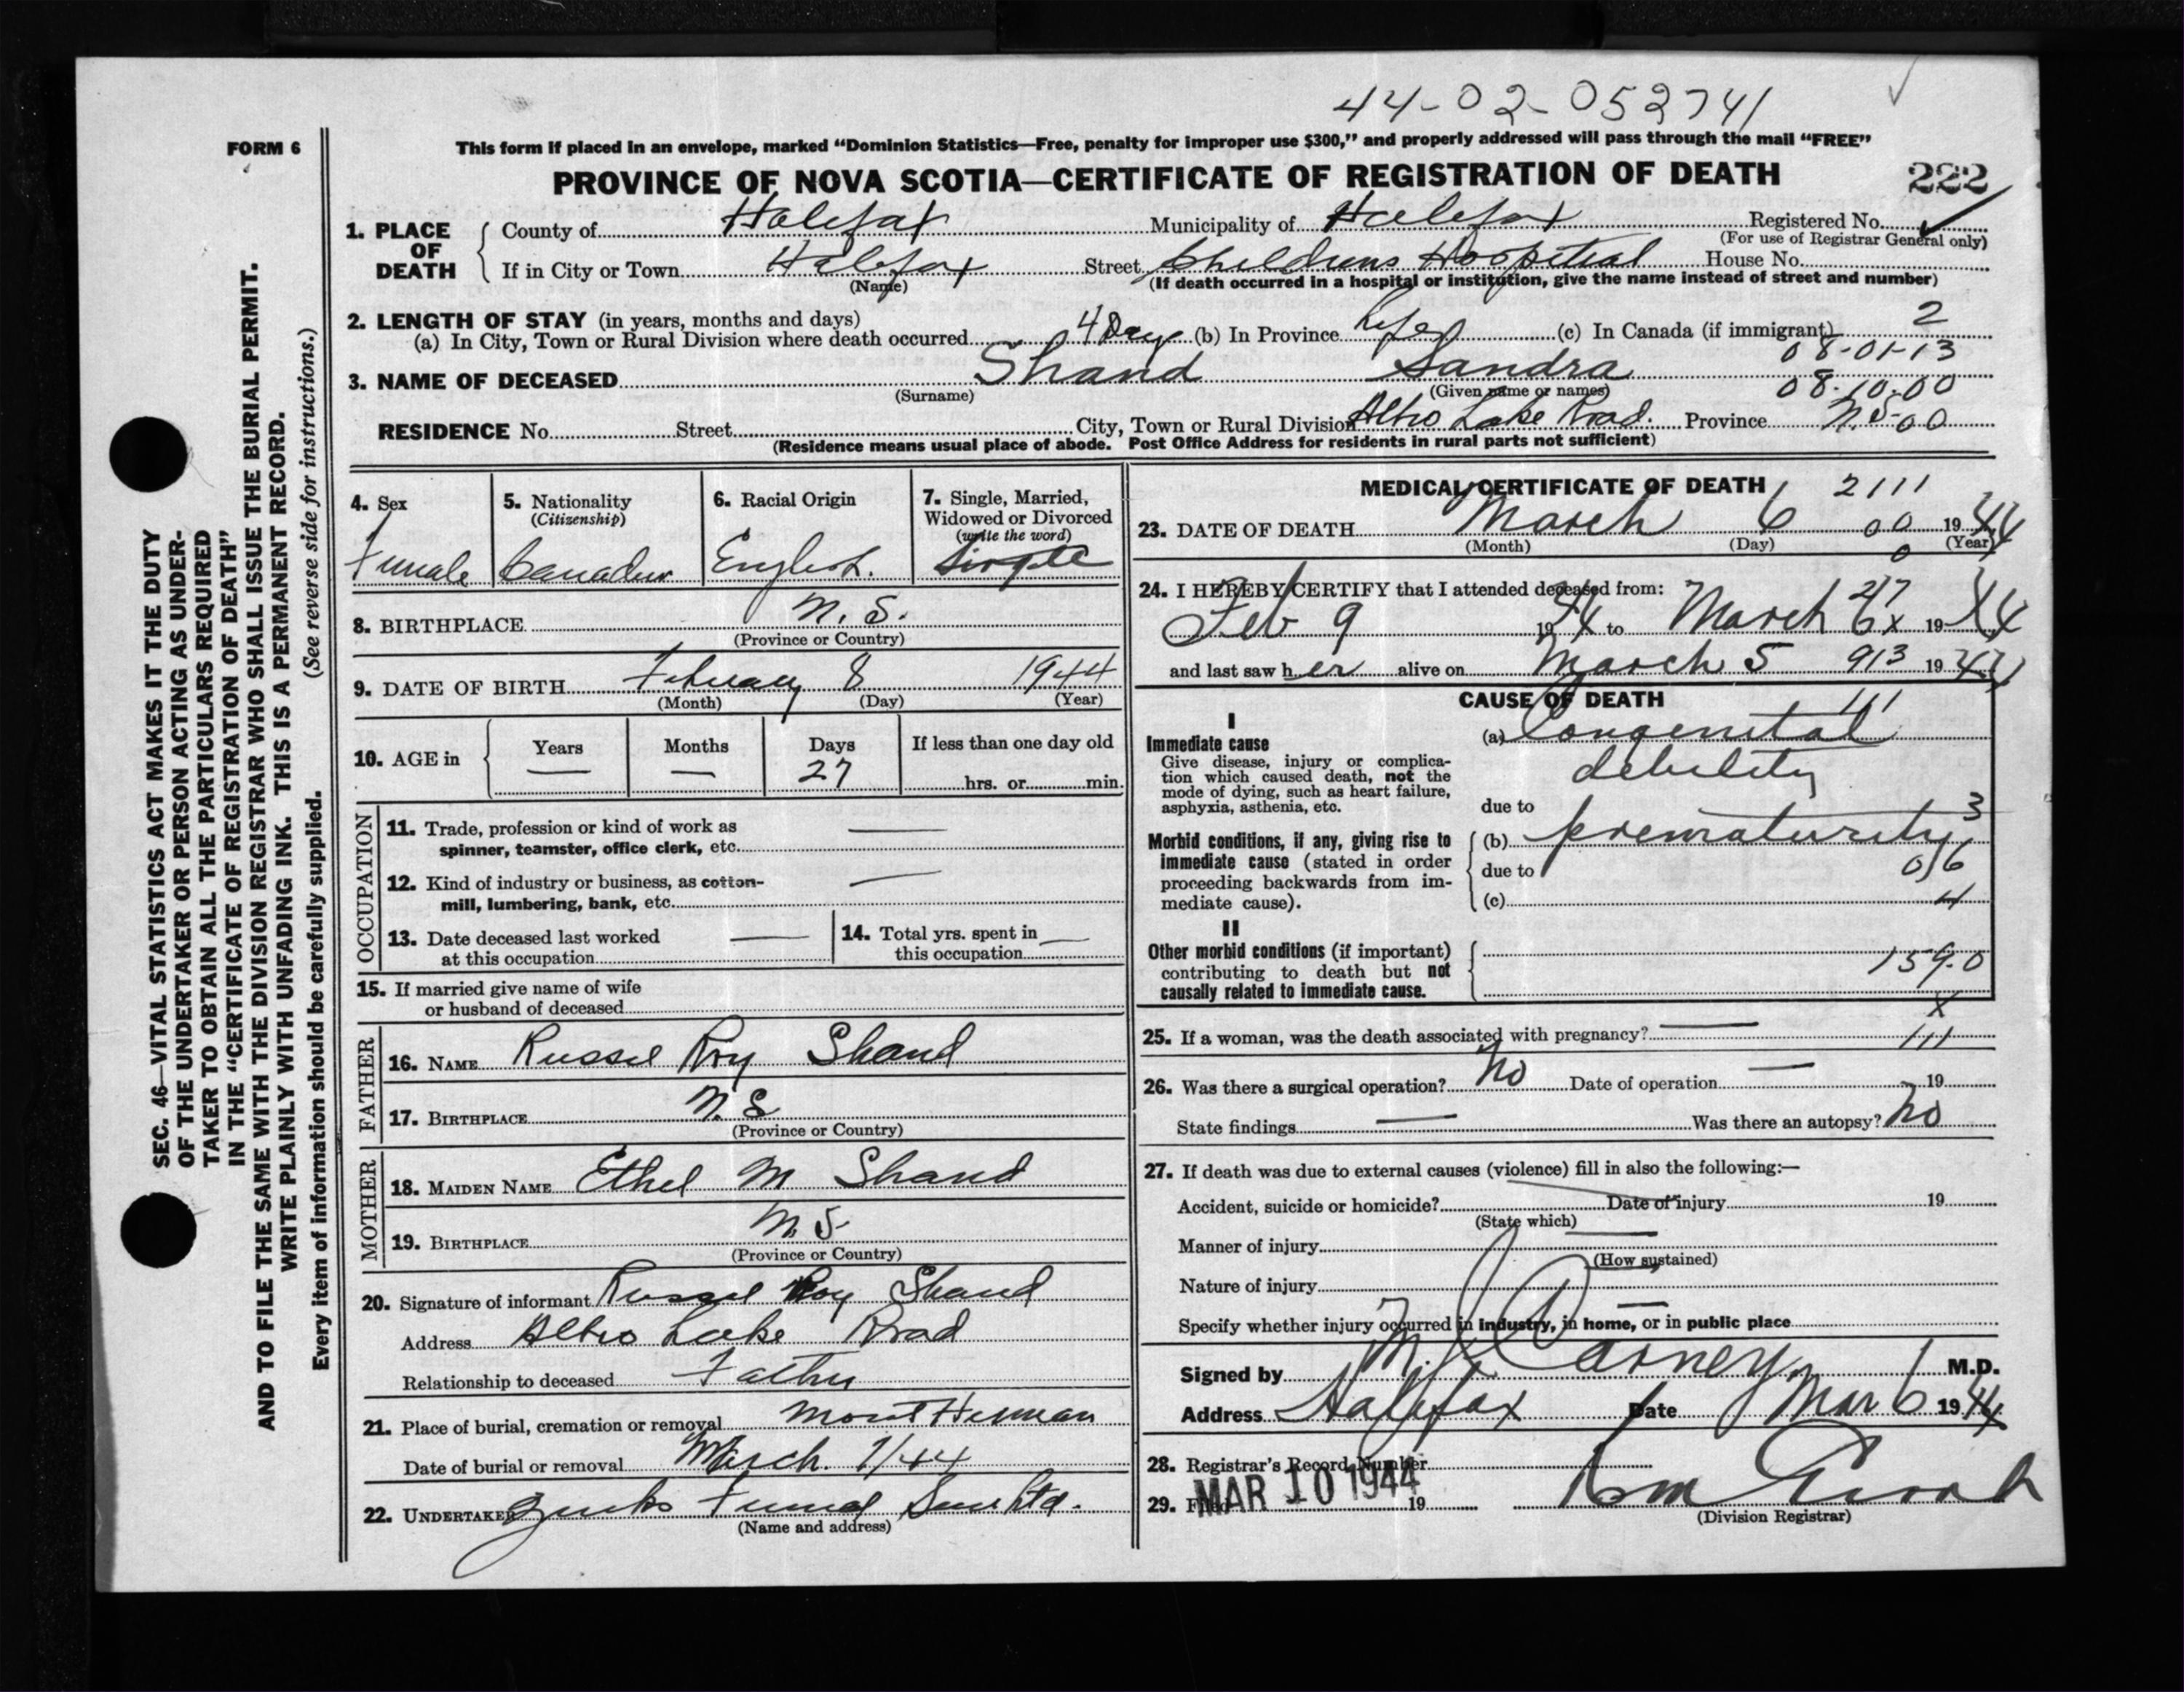 44-02-052741
FORM 6
This form if placed in an envelope, marked "Dominion Statistics—Free, penalty for improper use $300," and properly addressed will pass through the mail "FREE"
PROVINCE OF NOVA SCOTIA—CERTIFICATE OF REGISTRATION OF DEATH
222
1. PLACE OF DEATH
County of Halifax Municipality of Halifax Registered No.
(For use of Registrar General only)
If in City or Town Halifax Street Childrens Hospital House No.
(Name) (If death occurred in a hospital or institution, give the name instead of street and number)
2. LENGTH OF STAY (in years, months and days)
(a) In City, Town or Rural Division where death occurred 4 Days (b) In Province Life (c) In Canada (if immigrant) 2
08-01-13
3. NAME OF DECEASED Shand Sandra
(Surname) (Given name or names) 08-10-00
RESIDENCE No. Street City, Town or Rural Division Albro Lake Road. Province N.S. 00
(Residence means usual place of abode. Post Office Address for residents in rural parts not sufficient)
4. Sex
Female
5. Nationality
(Citizenship)
Canadian
6. Racial Origin
English.
7. Single, Married,
Widowed or Divorced
(write the word)
Single
8. BIRTHPLACE N.S.
(Province or Country)
9. DATE OF BIRTH February 8 1944
(Month) (Day) (Year)
10. AGE in
Years Months Days If less than one day old
— — 27 hrs. or min.
OCCUPATION
11. Trade, profession or kind of work as
spinner, teamster, office clerk, etc. —
12. Kind of industry or business, as cotton-
mill, lumbering, bank, etc. —
13. Date deceased last worked
at this occupation —
14. Total yrs. spent in
this occupation —
15. If married give name of wife
or husband of deceased
FATHER
16. NAME Russel Roy Shand
17. BIRTHPLACE N.S
(Province or Country)
MOTHER
18. MAIDEN NAME Ethel M Shand
19. BIRTHPLACE N.S.
(Province or Country)
20. Signature of informant Russel Roy Shand
Address Albro Lake Road
Relationship to deceased Father
21. Place of burial, cremation or removal Mount Herman
Date of burial or removal March. 7/44
22. UNDERTAKER Funeral Ltd.
(Name and address)
MEDICAL CERTIFICATE OF DEATH 2111
23. DATE OF DEATH March 6 00 1944
(Month) (Day) (Year)
0
24. I HEREBY CERTIFY that I attended deceased from:
27
Feb 9 1944 to March 6 x 1944
and last saw her alive on March 5 913 1944
CAUSE OF DEATH
111
I
Immediate cause
Give disease, injury or complica-
tion which caused death, not the
mode of dying, such as heart failure,
asphyxia, asthenia, etc.
(a) Congenital
debility
due to
3
Morbid conditions, if any, giving rise to
immediate cause (stated in order
proceeding backwards from im-
mediate cause).
(b) prematurity
due to 016
(c) 4
II
Other morbid conditions (if important)
contributing to death but not
causally related to immediate cause.
159.0
x
25. If a woman, was the death associated with pregnancy? — 111
26. Was there a surgical operation? No Date of operation — 19
State findings — Was there an autopsy? No
27. If death was due to external causes (violence) fill in also the following:—
Accident, suicide or homicide? Date of injury 19
(State which)
Manner of injury —
(How sustained)
Nature of injury
Specify whether injury occurred in industry, in home, or in public place —
Signed by M J Carney M.D.
Address Halifax Date Mar 6 1944
28. Registrar's Record Number
29. Filed MAR 10 1944 19
(Division Registrar)
SEC. 46—VITAL STATISTICS ACT MAKES IT THE DUTY
OF THE UNDERTAKER OR PERSON ACTING AS UNDER-
TAKER TO OBTAIN ALL THE PARTICULARS REQUIRED
IN THE "CERTIFICATE OF REGISTRATION OF DEATH"
AND TO FILE THE SAME WITH THE DIVISION REGISTRAR WHO SHALL ISSUE THE BURIAL PERMIT.
WRITE PLAINLY WITH UNFADING INK. THIS IS A PERMANENT RECORD.
Every item of information should be carefully supplied. (See reverse side for instructions.)